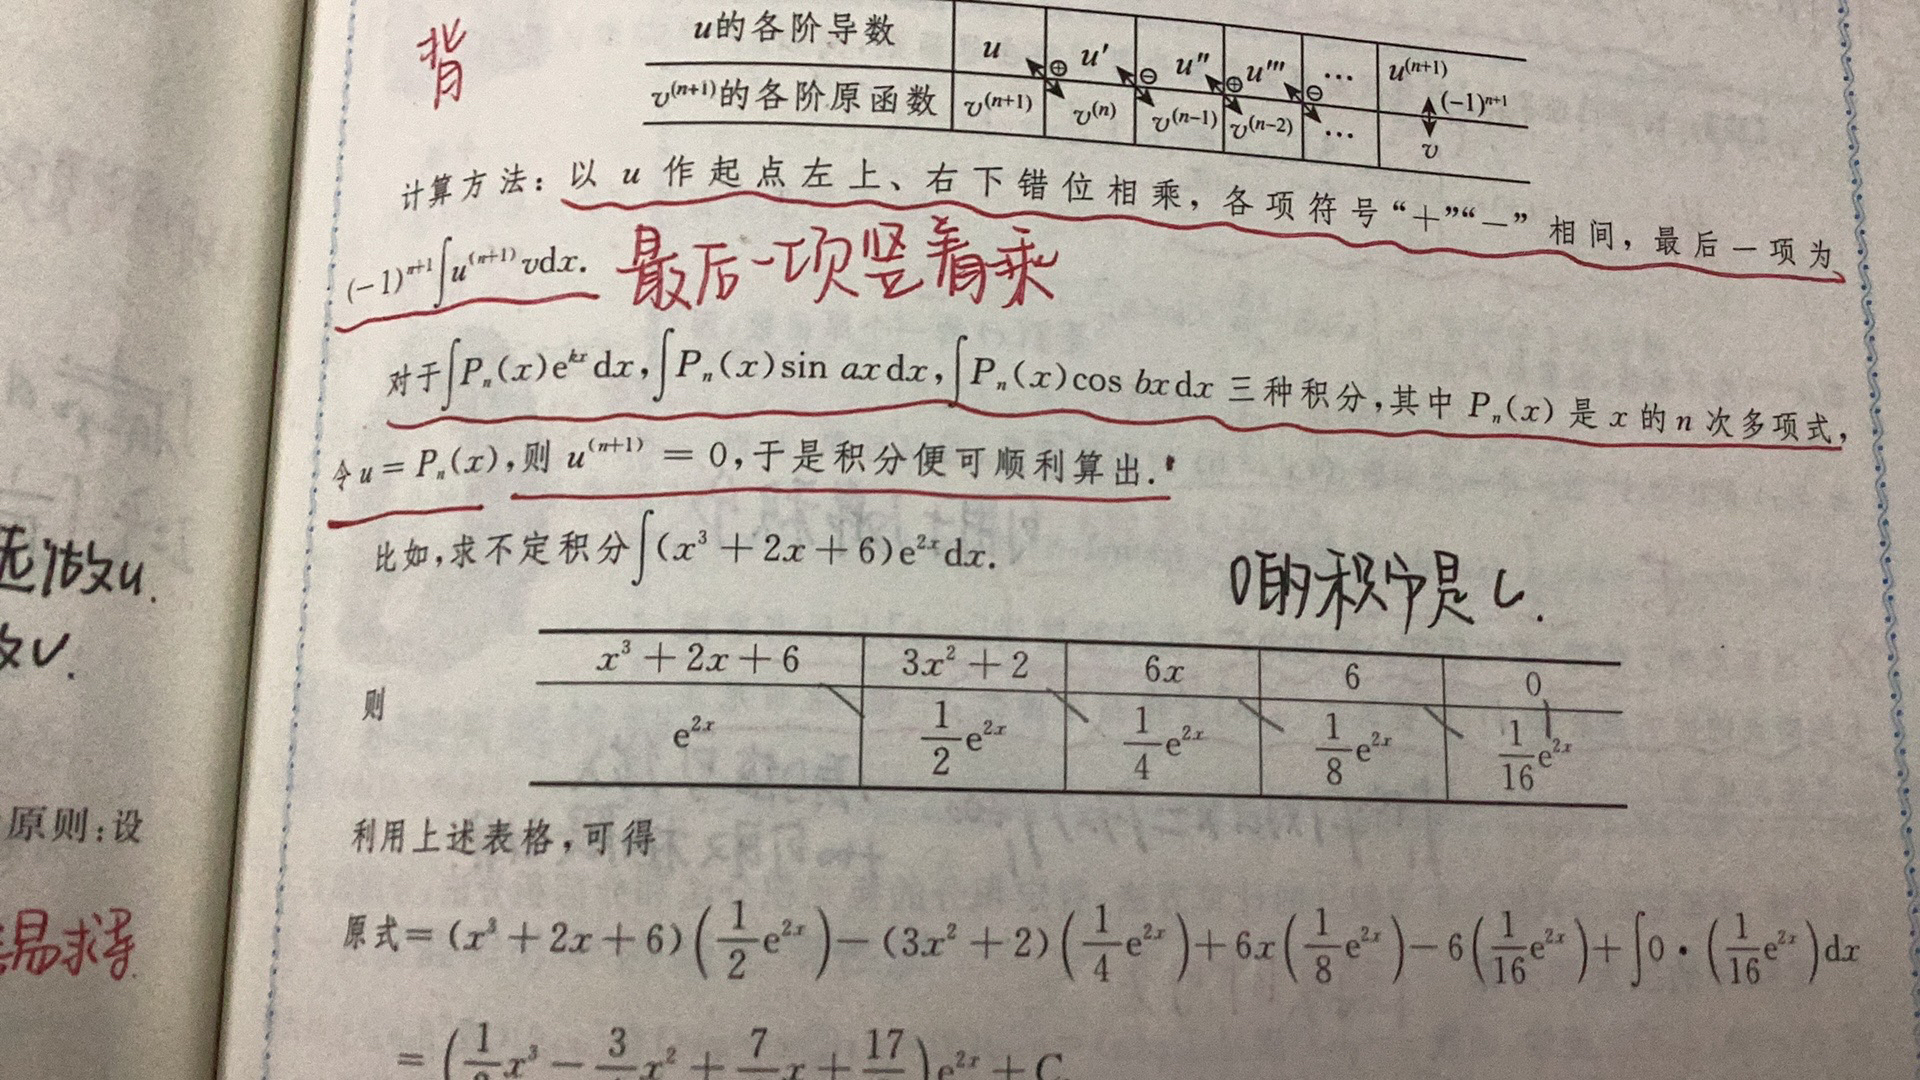 背
u的各阶导数 u ⊕ u′ ⊖ u″ ⊕ u‴ ⊖ … u⁽ⁿ⁺¹⁾
v⁽ⁿ⁺¹⁾的各阶原函数 v⁽ⁿ⁺¹⁾ v⁽ⁿ⁾ v⁽ⁿ⁻¹⁾ v⁽ⁿ⁻²⁾ … (−1)ⁿ⁺¹ v
计算方法：以 u 作起点左上、右下错位相乘，各项符号“＋”“－”相间，最后一项为
(−1)ⁿ⁺¹∫u⁽ⁿ⁺¹⁾vdx. 最后一项竖着乘
对于∫Pₙ(x)eᵏˣdx,∫Pₙ(x)sin axdx,∫Pₙ(x)cos bxdx 三种积分,其中 Pₙ(x) 是 x 的 n 次多项式,
令 u = Pₙ(x),则 u⁽ⁿ⁺¹⁾ = 0,于是积分便可顺利算出.
比如,求不定积分∫(x³ + 2x + 6)e²ˣdx.
0的积分是C.
选做u.
v.
x³ + 2x + 6 3x² + 2 6x 6 0
则 e²ˣ 1/2 e²ˣ 1/4 e²ˣ 1/8 e²ˣ 1/16 e²ˣ
原则:设
利用上述表格,可得
易求得
原式 = (x³ + 2x + 6)(1/2 e²ˣ) − (3x² + 2)(1/4 e²ˣ) + 6x(1/8 e²ˣ) − 6(1/16 e²ˣ) + ∫0·(1/16 e²ˣ)dx